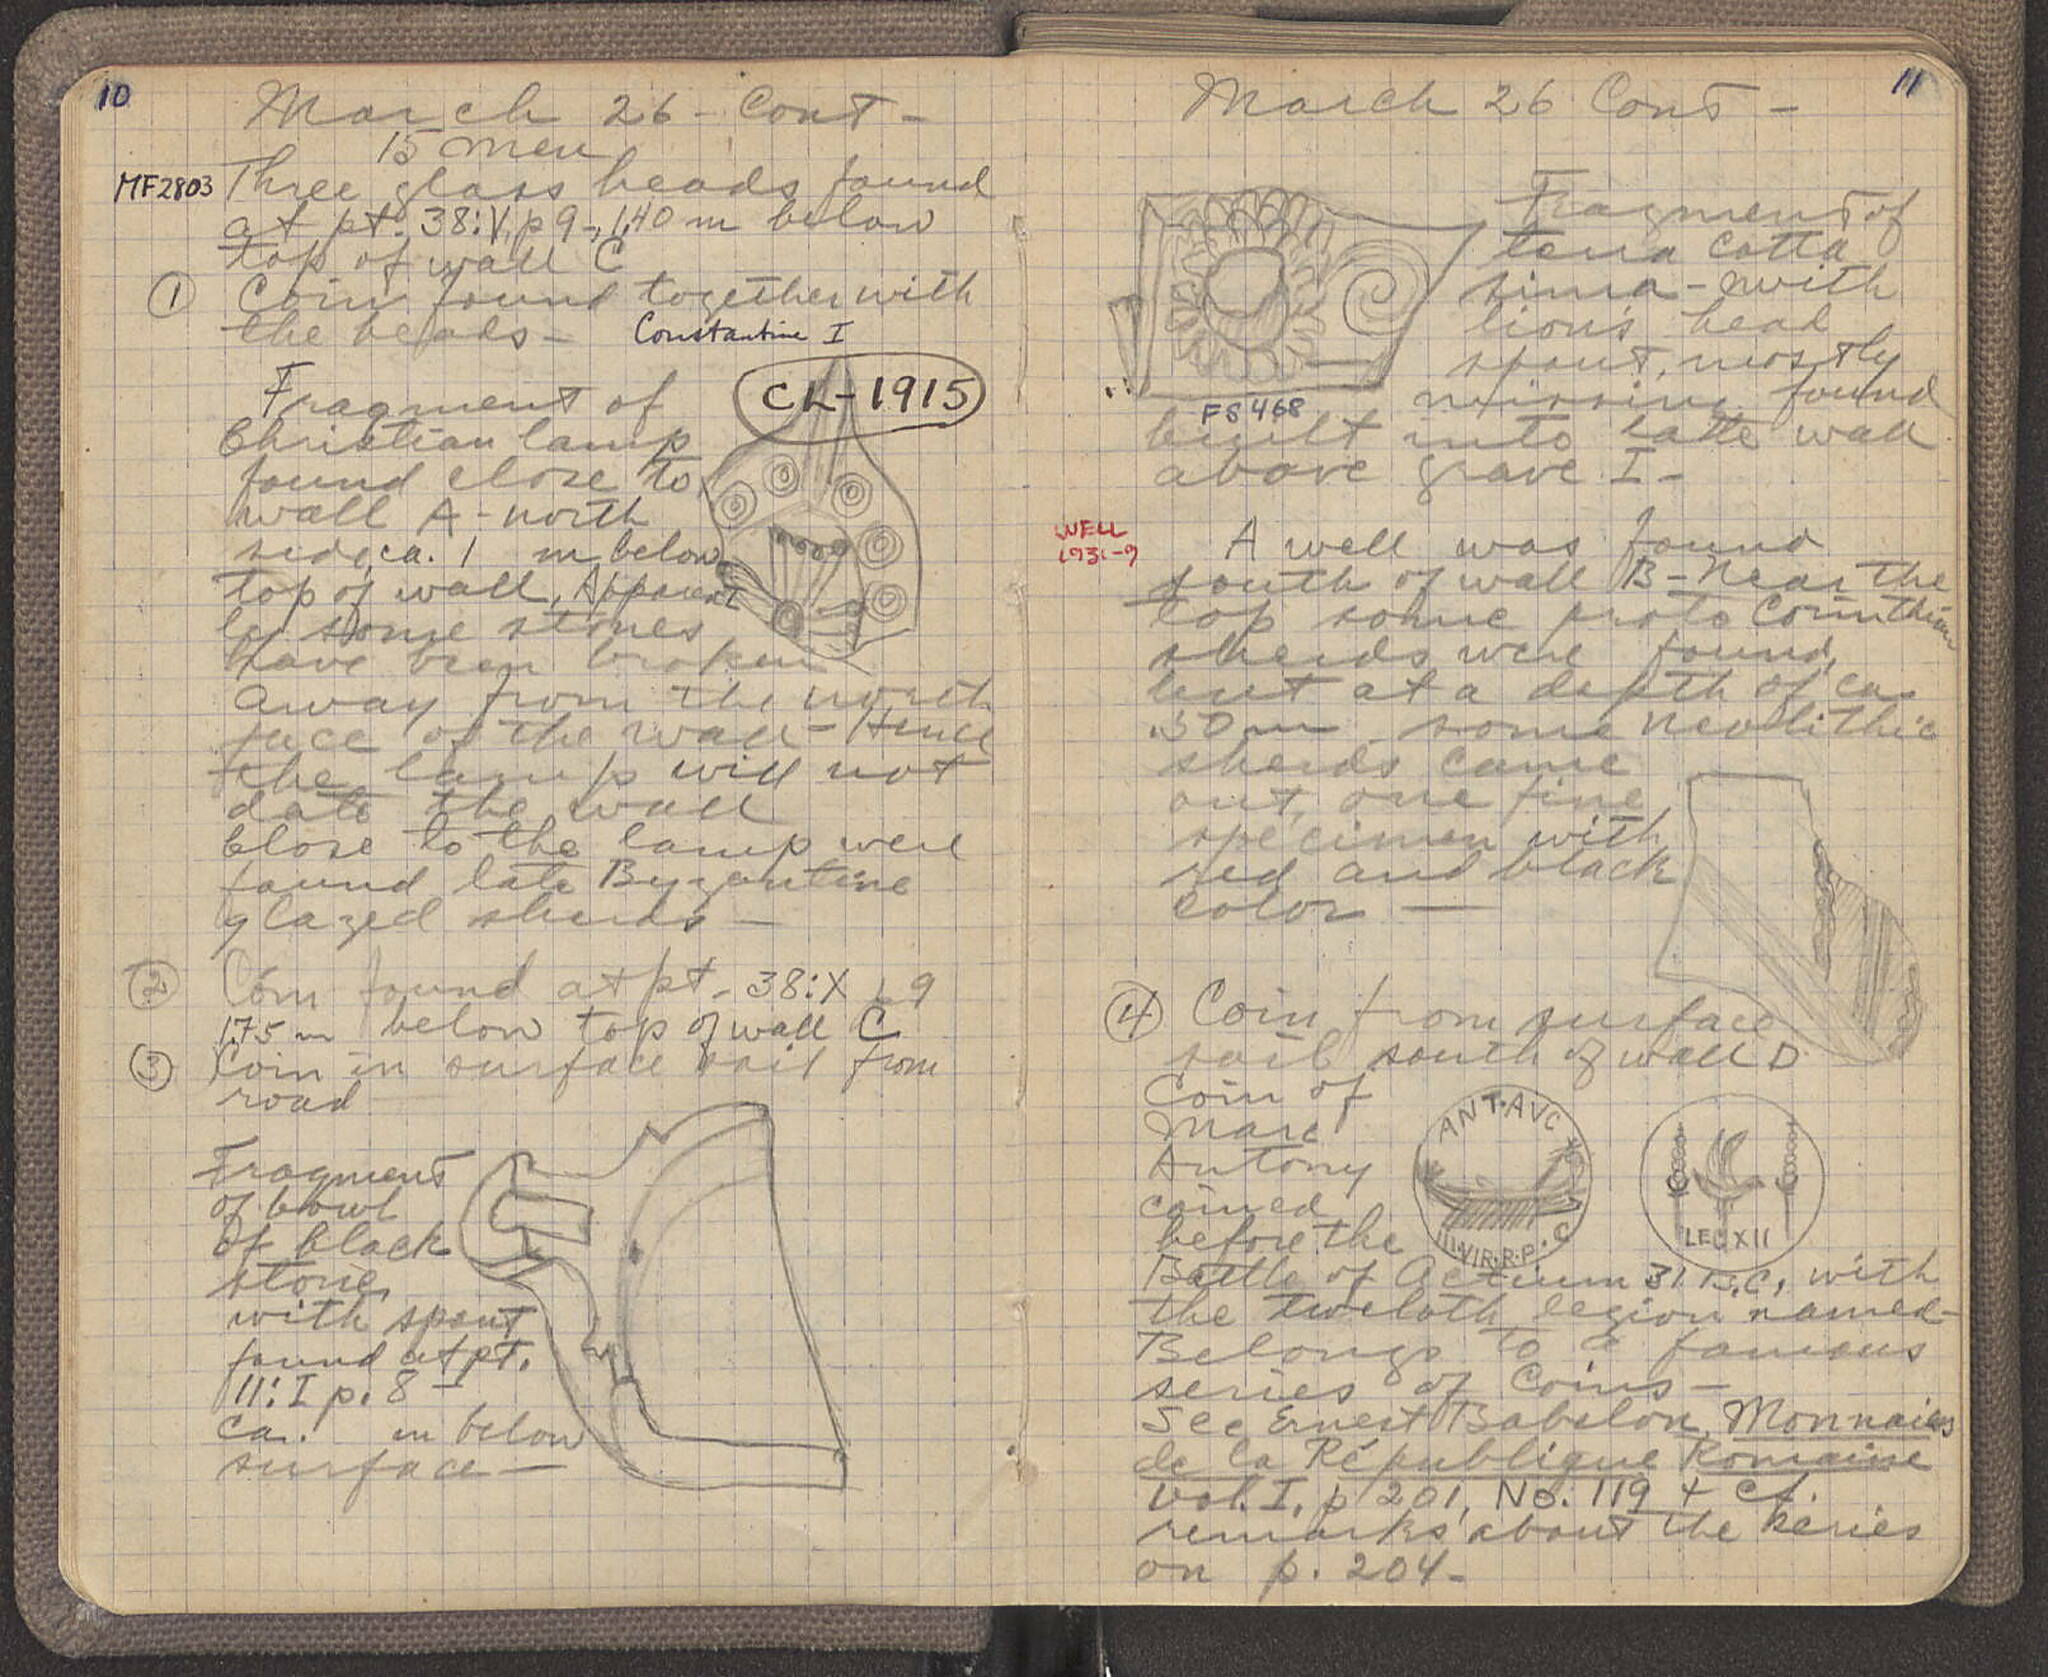 10
March 26 - Cont -
15 men
MF2803 Three glass beads found
at pt. 38:V, p 9-, 1,40 m below
top of wall C
① Coin found together with
the beads - Constantine I
CL-1915
Fragment of
Christian lamp
found close to
wall A - north
side, ca. 1 m below
top of wall, Apparent
ly some stones
have been broken
away from the north
face of the wall - Hence
the lamp will not
date the wall
Close to the lamp were
found late Byzantine
glazed sherds —
② Coin found at pt - 38:X p 9
1.75 m below top of wall C
③ Coin in surface soil from
road
Fragment
of bowl
of black
stone,
with spout
found at pt.
11:I p. 8 -
ca. 1 m below
surface —
11
March 26 Cont -
Fragment of
terra cotta
sima - with
lion's head
spout, mostly
missing found
FS 468
built into late wall
above grave I -
WELL
1931-9
A well was found
south of wall B - Near the
top some proto Corinthian
sherds were found,
but at a depth of ca.
.50 m some neolithic
sherds came
out, one fine
specimen with
red and black
color —
④ Coin from surface
soil south of wall D.
Coin of
Marc
Antony
coined
before the
ANT·AVC
III·VIR·R·P·C
LEG XII
Battle of Actium 31 B.C. with
the twelfth legion named -
Belongs to a famous
series of Coins -
See Ernest Babelon, Monnaies
de la République Romaine
Vol. I, p 201, No. 119 + cf.
remarks about the series
on p. 204 -